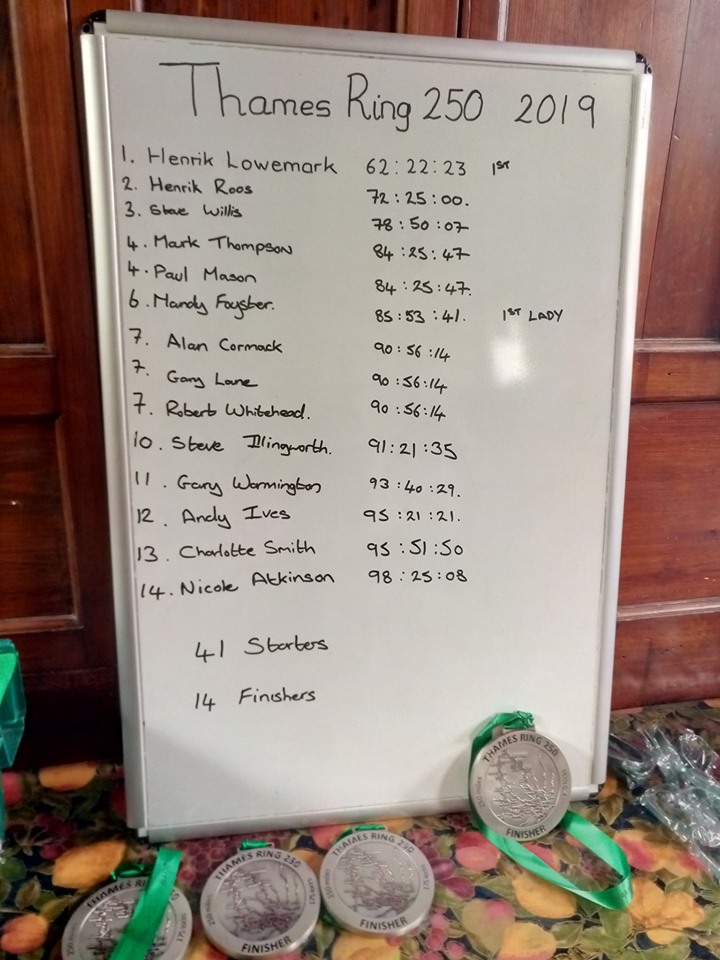 Thames Ring 250 2019
1. Henrik Lowemark 62:22:23 1ST
2. Henrik Roos 72:25:00.
3. Steve Willis 78:50:07
4. Mark Thompson 84:25:47
4. Paul Mason 84:25:47.
6. Mandy Foyster. 85:53:41. 1ST LADY
7. Alan Cormack 90:56:14
7. Gary Lane 90:56:14
7. Robert Whitehead. 90:56:14
10. Steve Illingworth. 91:21:35
11. Gary Warmington 93:40:29.
12. Andy Ives 95:21:21.
13. Charlotte Smith 95:51:50
14. Nicole Atkinson 98:25:08
41 Starters
14 Finishers
THAMES RING 250
FINISHER
THAMES RING 250
THAMES RING 250
250 miles
FINISHER
THAMES RING 250
250 miles
FINISHER